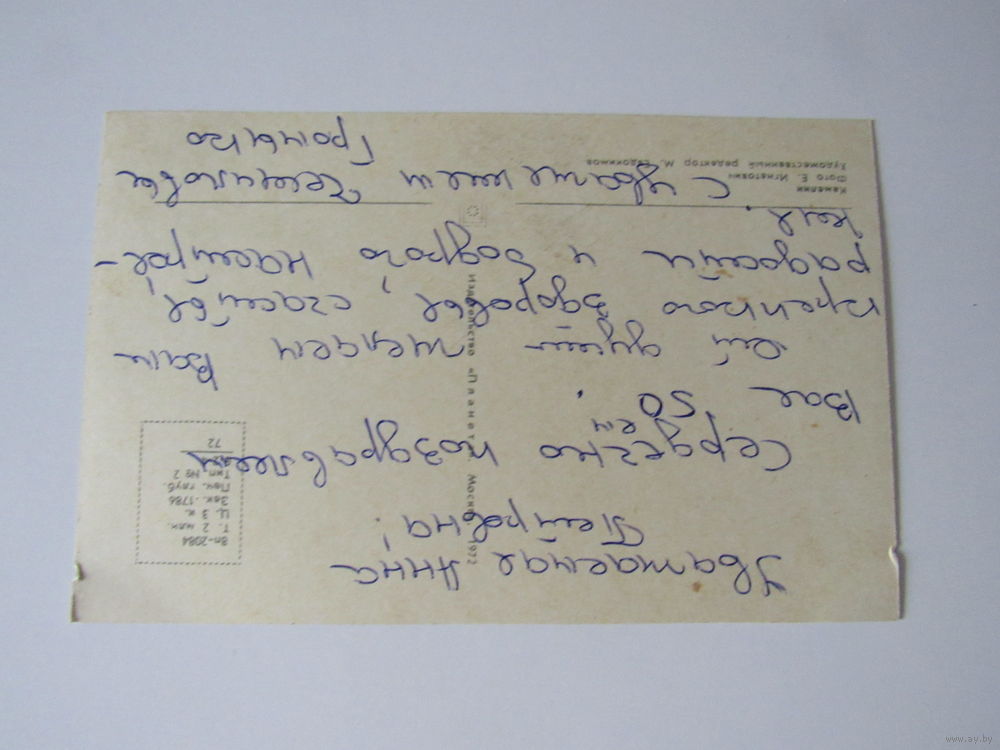 Уважаемая Анна
Петровна!
Сердечно поздравляем
ем
Вас 50.
желаем Вам
крепкого здоровья, счастья,
радости и бодрого настрое-
ния.
С уважением
Громыко
8п-2084
Т. 2 млн.
Ц. 3 к.
Зак. 1786
Печ. глуб.
Тип. № 2
72
Издательство «Планета» Москва 1972
Камелии
Фото Е. Игнатович
Художественный редактор М. Евдокимов
www.ay.by